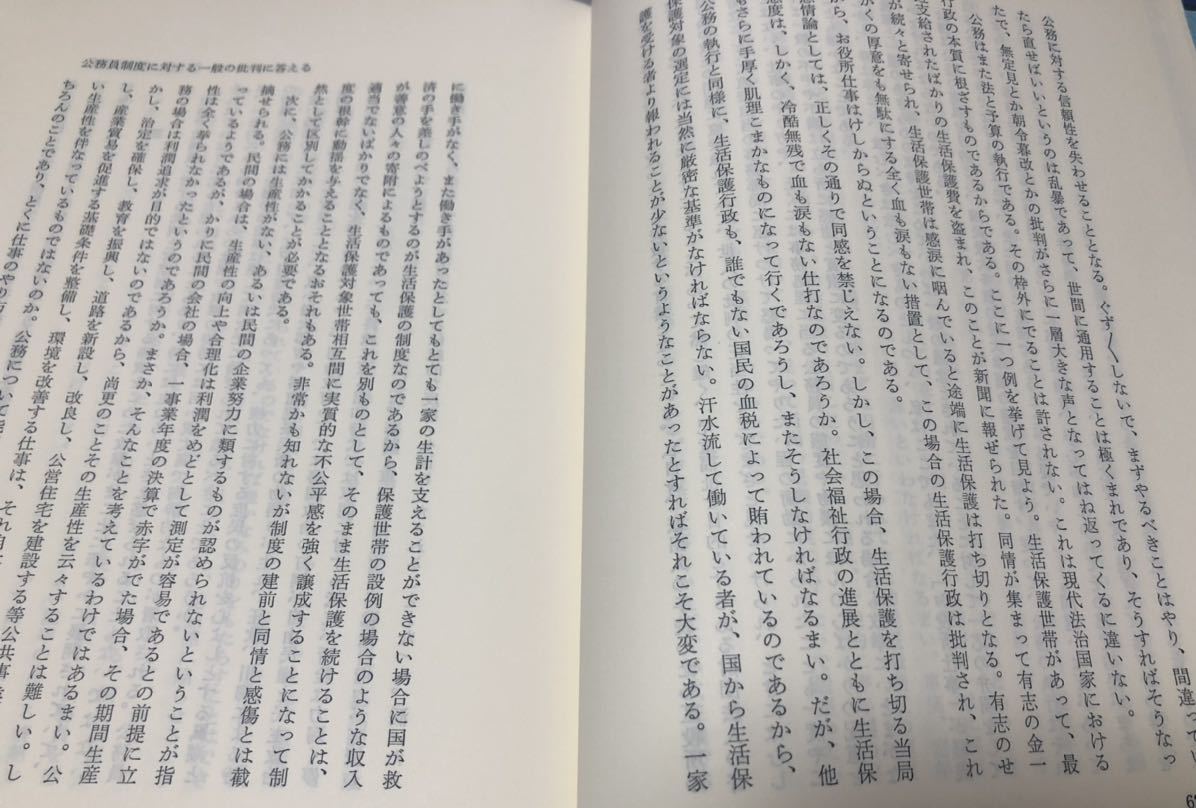 公務に対する信頼性を失わせることとなる。ぐず〱しないで、まずやるべきことはやり、間違ってい
たら直せばいいというのは乱暴であって、世間に通用することは極くまれであり、そうすればそうなっ
たで、無定見とか朝令暮改とかの批判がさらに一層大きな声となってはね返ってくるに違いない。
公務はまた法と予算の執行である。その枠外にでることは許されない。これは現代法治国家における
行政の本質に根ざすものであるからである。ここに一つ例を挙げて見よう。生活保護世帯があって、最
支給されたばかりの生活保護費を盗まれ、このことが新聞に報ぜられた。同情が集まって有志の金一
が続々と寄せられ、生活保護世帯は感涙に咽んでいると途端に生活保護は打ち切りとなる。有志のせ
かくの厚意をも無駄にする全く血も涙もない措置として、この場合の生活保護行政は批判され、これ
から、お役所仕事はけしからぬということになるのである。
情論としては、正しくその通りで同感を禁じえない。しかし、この場合、生活保護を打ち切る当局
態度は、しかく、冷酷無残で血も涙もない仕打なのであろうか。社会福祉行政の進展とともに生活保
もさらに手厚く肌理こまかなものになって行くであろうし、またそうしなければなるまい。だが、他
公務の執行と同様に、生活保護行政も、誰でもない国民の血税によって賄われているのであるから、
保護対象の選定には当然に厳密な基準がなければならない。汗水流して働いている者が、国から生活保
護を受ける者より報われることが少ないというようなことがあったとすればそれこそ大変である。一家
公務員制度に対する一般の批判に答える
に働き手がなく、また働き手があったとしてもとても一家の生計を支えることができない場合に国が救
済の手を差しのべようとするのが生活保護の制度なのであるから、保護世帯の設例の場合のような収入
が善意の人々の寄附によるものであっても、これを別ものとして、そのまま生活保護を続けることは、
適当でないばかりでなく、生活保護対象世帯相互間に実質的な不公平感を強く譲成することになって制
度の根幹に動揺を与えることとなるおそれもある。非常かも知れないが制度の建前と同情と感傷とは截
然として区別してかかることが必要である。
次に、公務には生産性がない、あるいは民間の企業努力に類するものが認められないということが指
摘せられる。民間の場合は、生産性の向上や合理化は利潤をめどとして測定が容易であるとの前提に立
っているようであるが、かりに民間の会社の場合、一事業年度の決算で赤字がでた場合、その期間生産
性は全く挙られなかったというのであろうか。まさか、そんなことを考えているわけではあるまい。公
務の場合は利潤追求が目的ではないのであるから、尚更のことその生産性を云々することは難しい。し
かし、治定を確保し、教育を振興し、道路を新設し、改良し、公営住宅を建設する等公共事
し、産業貿易を促進する基礎条件を整備し、環境を改善する仕事は、それ自
い生産性を伴なっているものではないのか。公務について
ちろんのことであり、とくに仕事のやり